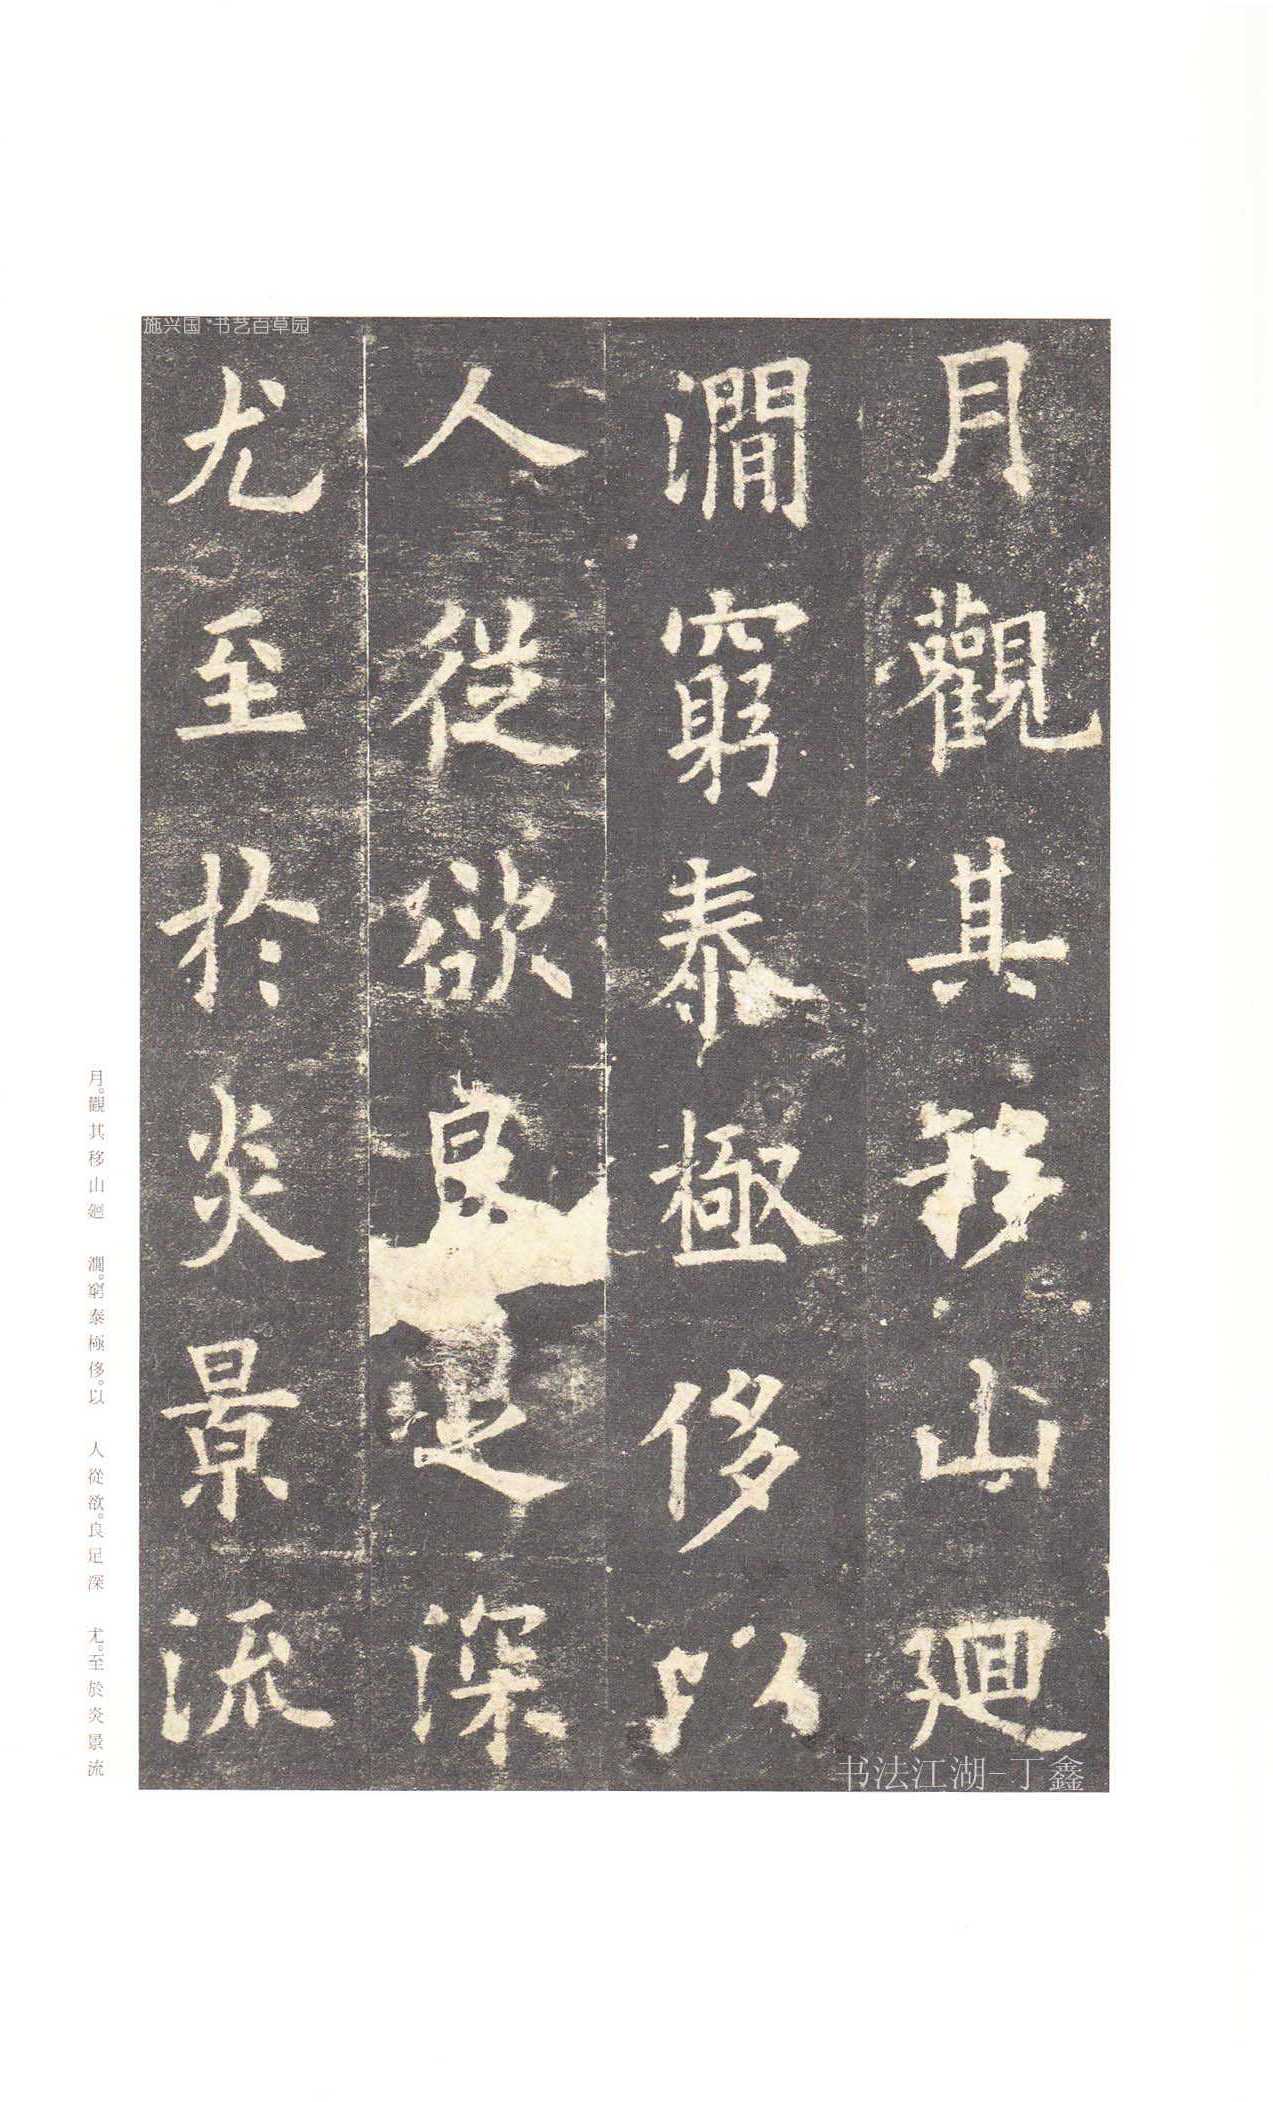 施兴国·书艺百草园
月觀其移山廻
澗窮泰極侈以
人從欲良足深
尤至於炎景流
月。觀其移山廻 澗。窮泰極侈。以 人從欲。良足深 尤。至於炎景流
书法江湖-丁鑫